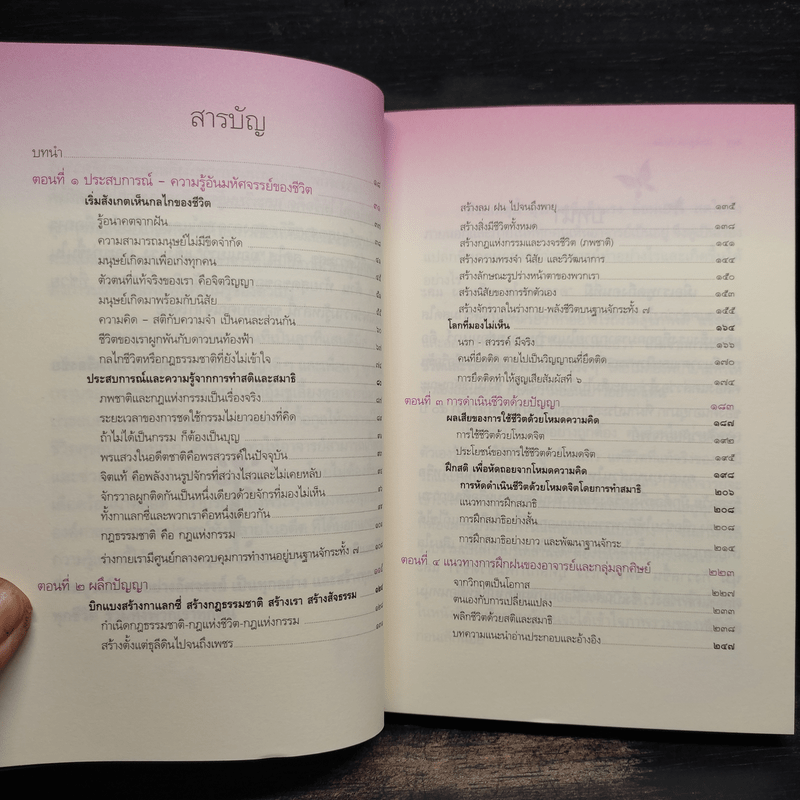 สารบัญ
บทนำ ๑๘
ตอนที่ ๑ ประสบการณ์ – ความรู้อันมหัศจรรย์ของชีวิต
เริ่มสังเกตเห็นกลไกของชีวิต
รู้อนาคตจากฝัน
ความสามารถมนุษย์ไม่มีขีดจำกัด
มนุษย์เกิดมาเพื่อเก่งทุกคน
ตัวตนที่แท้จริงของเรา คือจิตวิญญา
มนุษย์เกิดมาพร้อมกับนิสัย
ความคิด – สติกับความจำ เป็นคนละส่วนกัน
ชีวิตของเราผูกพันกับดาวบนท้องฟ้า
กลไกชีวิตหรือกฎธรรมชาติที่ยังไม่เข้าใจ
ประสบการณ์และความรู้จากการทำสติและสมาธิ
ภพชาติและกฎแห่งกรรมเป็นเรื่องจริง
ระยะเวลาของการชดใช้กรรมไม่ยาวอย่างที่คิด
ถ้าไม่ได้เป็นกรรม ก็ต้องเป็นบุญ
พรแสวงในอดีตชาติคือพรสวรรค์ในปัจจุบัน
จิตแท้ คือพลังงานรูปจักรที่สว่างไสวและไม่เคยหลับ
จักรวาลผูกติดกันเป็นหนึ่งเดียวด้วยจักรที่มองไม่เห็น
ทั้งกาแลกซี่และพวกเราคือหนึ่งเดียวกัน
กฎธรรมชาติ คือ กฎแห่งกรรม
ร่างกายเรามีศูนย์กลางควบคุมการทำงานอยู่บนฐานจักระทั้ง ๗
ตอนที่ ๒ ผลึกปัญญา
บิกแบงสร้างกาแลกซี่ สร้างกฎธรรมชาติ สร้างเรา สร้างสัจธรรม
กำเนิดกฎธรรมชาติ-กฎแห่งชีวิต-กฎแห่งกรรม
สร้างตั้งแต่ธุลีดินไปจนถึงเพชร
สร้างลม ฝน ไปจนถึงพายุ ๑๓๕
สร้างสิ่งมีชีวิตทั้งหมด ๑๓๘
สร้างกฎแห่งกรรมและวงจรชีวิต (ภพชาติ) ๑๔๑
สร้างความทรงจำ นิสัย และวิวัฒนาการ ๑๔๔
สร้างลักษณะรูปร่างหน้าตาของพวกเรา ๑๕๐
สร้างนิสัยของการรักตัวเอง ๑๕๓
สร้างจักรวาลในร่างกาย-พลังชีวิตบนฐานจักระทั้ง ๗ ๑๕๕
โลกที่มองไม่เห็น ๑๖๔
นรก - สวรรค์ มีจริง ๑๖๖
คนที่ยึดติด ตายไปเป็นวิญญาณที่ยึดติด ๑๗๐
การยึดติดทำให้สูญเสียสัมผัสที่ ๖ ๑๗๔
ตอนที่ ๓ การดำเนินชีวิตด้วยปัญญา ๑๘๓
ผลเสียของการใช้ชีวิตด้วยโหมดความคิด ๑๘๗
การใช้ชีวิตด้วยโหมดจิต ๑๙๒
ประโยชน์ของการใช้ชีวิตด้วยโหมดจิต ๑๙๕
ฝึกสติ เพื่อหัดถอยจากโหมดความคิด ๑๙๘
การหัดดำเนินชีวิตด้วยโหมดจิตโดยการทำสมาธิ ๒๐๖
แนวทางการฝึกสมาธิ ๒๐๘
การฝึกสมาธิอย่างสั้น ๒๐๘
การฝึกสมาธิอย่างยาว และพัฒนาฐานจักระ ๒๑๔
ตอนที่ ๔ แนวทางการฝึกฝนของอาจารย์และกลุ่มลูกศิษย์ ๒๒๓
จากวิกฤตเป็นโอกาส ๒๒๗
ตนเองกับการเปลี่ยนแปลง ๒๓๓
พลิกชีวิตด้วยสติและสมาธิ ๒๓๘
บทความแนะนำอ่านประกอบและอ้างอิง ๒๔๗